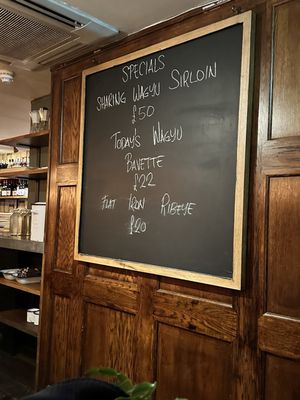 SPECIALS
SHARING WAGYU SIRLOIN
£50
TODAY'S WAGYU
BAVETTE
£22
FLAT IRON RIBEYE
£20